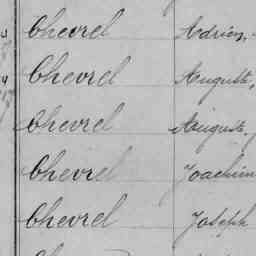 Chevrel Adrien,
Chevrel Auguste,
Chevrel Auguste,
Chevrel Joachim
Chevrel Joseph